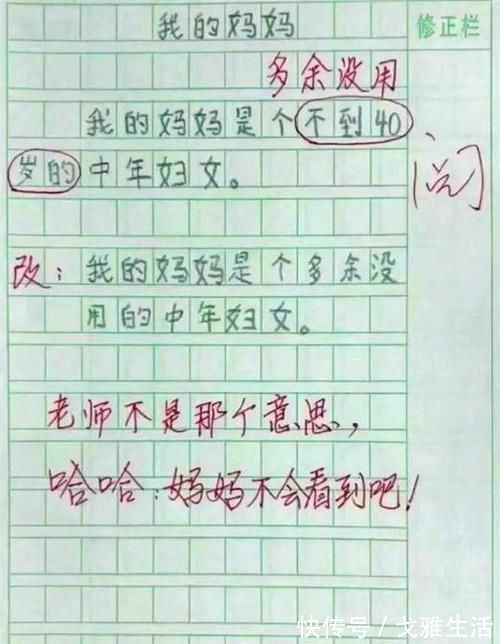 我的妈妈
修正栏
多余没用
我的妈妈是个不到40
岁的中年妇女。
阅
改：我的妈妈是个多余没
用的中年妇女。
老师不是那个意思，
哈哈：妈妈不会看到吧！
快传号／戈雅生活